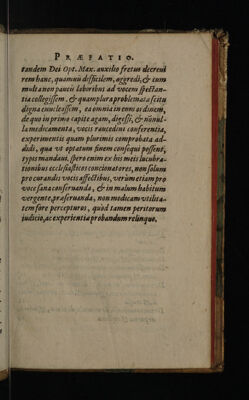 PRÆFATIO.
tandem Dei Opt. Max. auxilio fretus decreui
rem hanc, quamuis difficilem, aggredi, & cum
multa non paucis laboribus ad vocem spectan-
tia collegissem, & quamplura problemata scitu
digna enucleassem, ea omnia in eum ordinem,
de quo in primo capite agam, digessi, & nōnul-
la medicamenta, vocis raucedini conferentia,
experimentis quam plurimis comprobata ad-
didi, qua vt optatum finem consequi possent,
typis mandaui. spero enim ex his meis lucubra-
tionibus ecclesiasticos concionatores, non solum
pro curandis vocis affectibus, verùm etiam pro
voce sana conseruanda, & in malum habitum
vergente praseruanda, non modicam vtilita-
tem fore percepturos, quòd tamen peritorum
iudicio, ac experientia probandum relinquo.